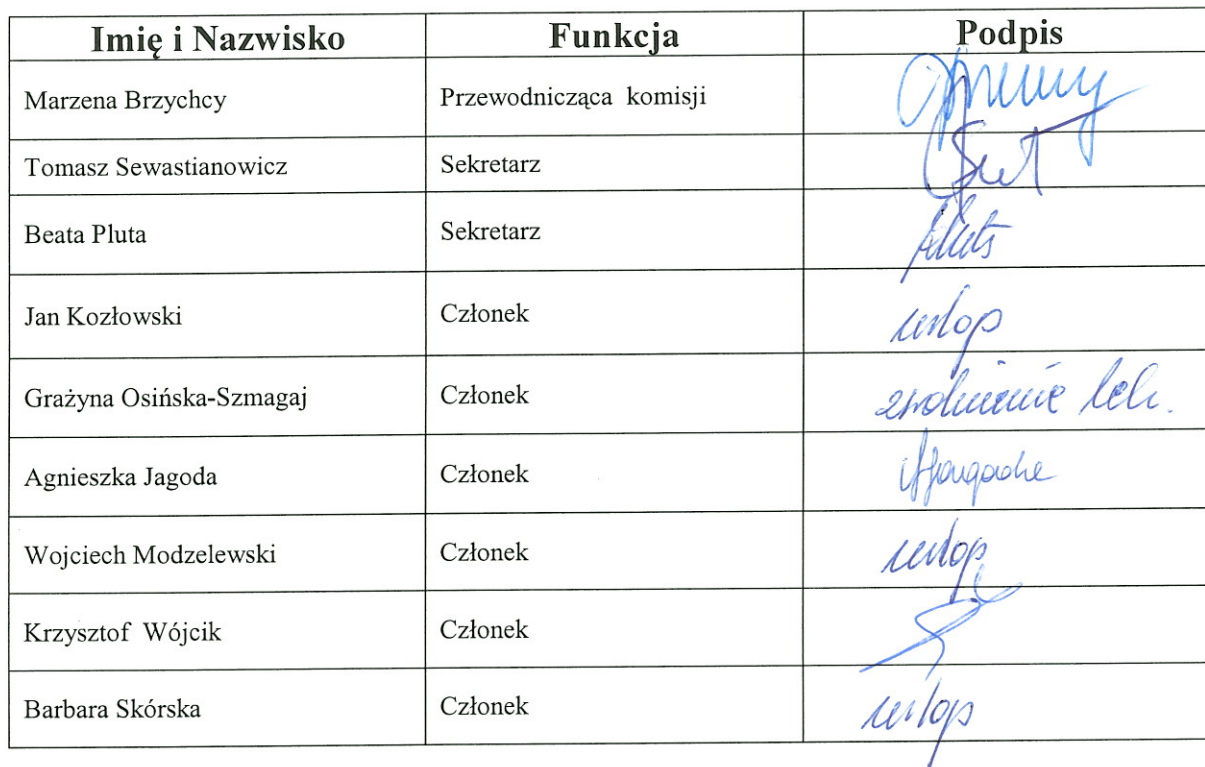 Imię i Nazwisko Funkcja Podpis
Marzena Brzychcy Przewodnicząca komisji
Tomasz Sewastianowicz Sekretarz
Beata Pluta Sekretarz
Jan Kozłowski Członek urlop
Grażyna Osińska-Szmagaj Członek zwolnienie lek.
Agnieszka Jagoda Członek
Wojciech Modzelewski Członek urlop
Krzysztof Wójcik Członek
Barbara Skórska Członek urlop